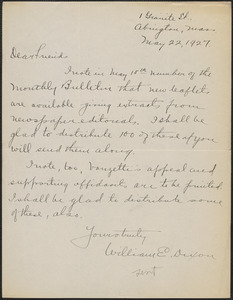 1 Granite St.
Abington, Mass
May 22, 1927
Dear Friends:
I note in May 10th number of the
Monthly Bulletin that new leaflets
are available giving extracts from
newspaper editorials. I shall be
glad to distribute 100 of these if you
will send them along.
I note, too, Vanzetti's appeal and
supporting affidavits are to be printed
I shall be glad to distribute some
of these, also.
Yours truly
William E.